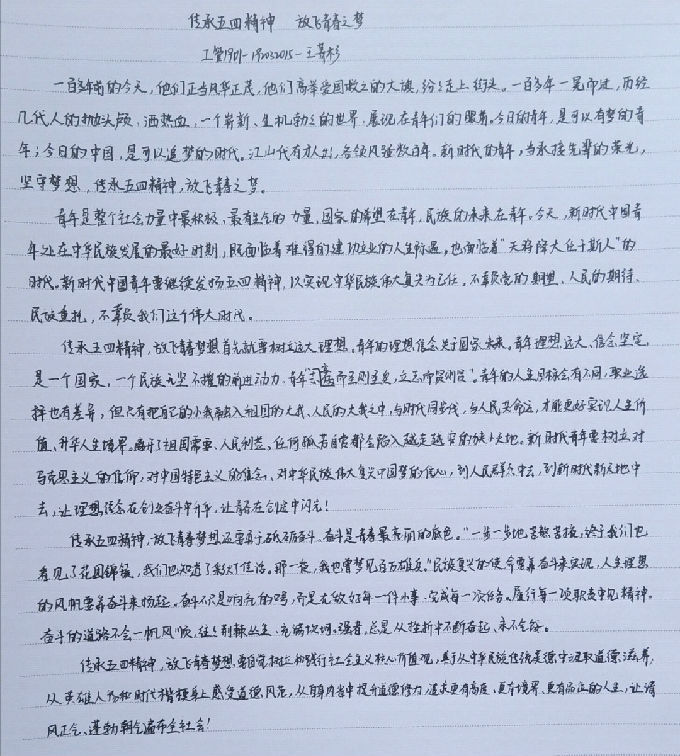 传承五四精神 放飞青春之梦
工管1901-192032015-王菁杉
一百多年前的今天，他们正当风华正茂，他们高举爱国救亡的大旗，纷纷走上街头。一百多年一晃而过，历经
几代人的抛头颅、洒热血，一个崭新、生机勃勃的世界，展现在青年们的眼前。今日的青年，是可以有梦的青
年；今日的中国，是可以追梦的时代。江山代有才人出，各领风骚数百年。新时代的青年，当承接先辈的荣光，
坚守梦想，传承五四精神，放飞青春之梦。
青年是整个社会力量中最积极、最有生气的力量，国家的希望在青年，民族的未来在青年。今天，新时代中国青
年处在中华民族发展的最好时期，既面临着难得的建功立业的人生际遇，也面临着“天将降大任于斯人”的
时代。新时代中国青年要继续发扬五四精神，以实现中华民族伟大复兴为己任，不辜负党的期望、人民的期待、
民族重托，不辜负我们这个伟大时代。
传承五四精神，放飞青春梦想首先就要树立远大理想。青年的理想信念关乎国家未来。青年理想远大、信念坚定，
是一个国家、一个民族无坚不摧的前进动力。青年志存高远而至则主发，立志而贤则贤”。青年的人生目标会有不同，职业选
择也有差异，但只有把自己的小我融入祖国的大我、人民的大我之中，与时代同步伐、与人民共命运，才能更好实现人生价
值、升华人生境界。离开了祖国需要、人民利益，任何孤芳自赏都会陷入越走越窄的狭小天地。新时代青年要树立对
马克思主义的信仰，对中国特色主义的信念、对中华民族伟大复兴中国梦的信心，到人民群众中去，到新时代新天地中
去，让理想信念在创业奋斗中升华，让青春在创造中闪光！
传承五四精神，放飞青春梦想，还需勇于砥砺奋斗。奋斗是青春最亮丽的底色。“一步一步地苦熬苦撑，终于我们也
看见了花团锦簇，我们也知道了彩灯佳话。那一夜，我也曾梦见百万雄兵。”民族复兴的使命要靠奋斗来实现，人生理想
的风帆要靠奋斗来扬起。奋斗不只是响亮的口号，而是在做好每一件小事、完成每一项任务、履行每一项职责中见精神。
奋斗的道路不会一帆风顺，往往荆棘丛生、充满坎坷。强者，总是从挫折中不断奋起、永不气馁。
传承五四精神，放飞青春梦想，要自觉树立和践行社会主义核心价值观，勇于从中华民族传统美德中汲取道德滋养，
从英雄人物和时代楷模身上感受道德风范，从自身内省中提升道德修为，追求更有高度、更有境界、更有品位的人生，让清
风正气、蓬勃朝气遍布全社会！